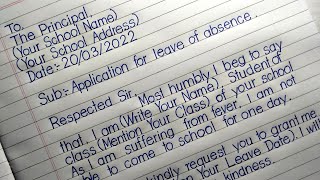 To,
The Principal,
(Your School Name)
(Your School Address)
Date:- 20/03/2022
Sub:- Application for leave of absence.
Respected Sir,
Most humbly, I beg to say
that I am (Write Your Name), Student of
class (Mention Your Class) of your school
As I am suffering from fever. I am not
able to come to school for one day.
kindly request you to grant me
on Your Leave Date). I will
kindness.